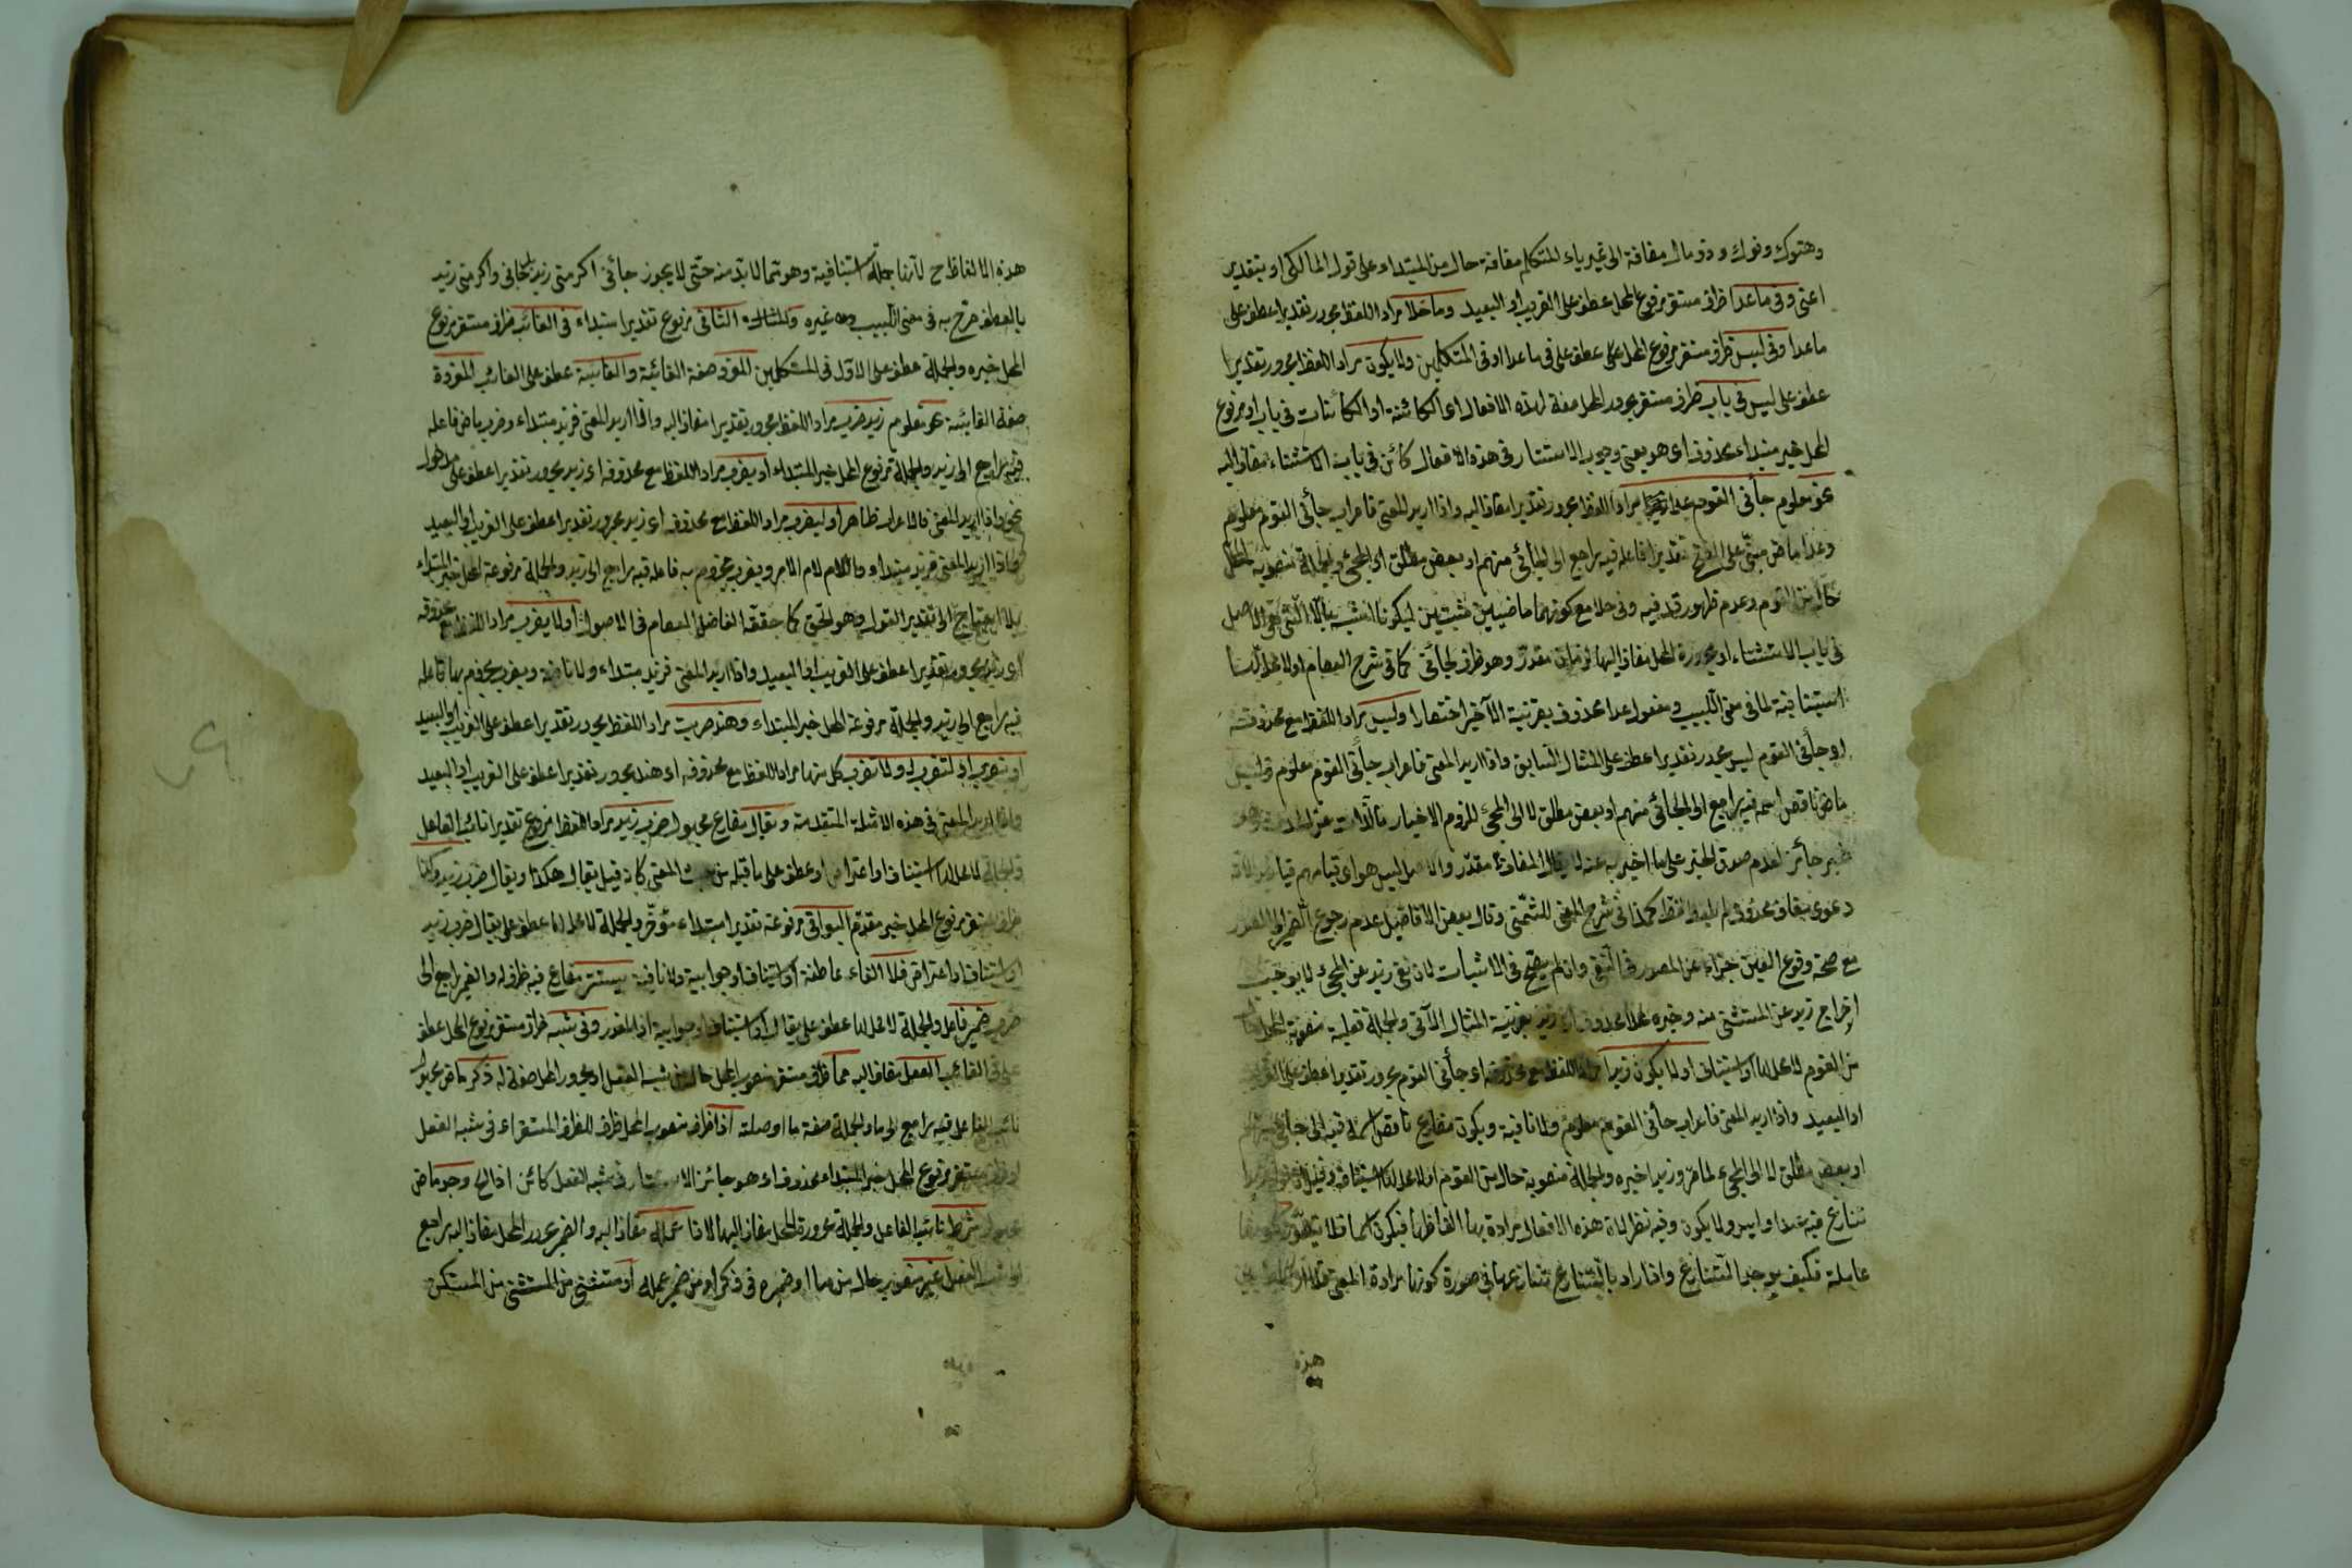 وهنوك وفوك وذو مال مضافة الى غير ياء المتكلم مضافة حال من المبتداء على قول المالكى او بتقدير
اعنى وفى ماعدا ظرف مستقر مرفوع المحل عطف على القريب او البعيد وما خلا مراد اللفظ مجرور تقديرا عطف على
ماعدا وفى ليس ظرف مستقر مرفوع المحل عطف على فى ماعدا او فى المتكلمين ولا يكون مراد اللفظ مجرور تقديرا
عطف على ليس فى باب ظرف مستقر مجرور المحل صفة لهذه الافعال اى الكائنة او الكائنات فى باب او مرفوع
المحل خبر مبتداء محذوف اى هو يعنى وجوب الاستتار فى هذه الافعال كائن فى باب الاستثناء مضاف اليه
نحو معلوم جائنى القوم عدا زيدا مراد اللفظ مجرور تقديرا مضاف اليه واذا اريد المعنى فاعراب جائنى القوم معلوم
وعدا ماض مبنى على الفتح تقديرا فاعله فيه راجع الى الجائى منهم او بعض مطلق او المجئ والجملة منصوبة المحل
حال من القوم وعدم ظهور قد فيه وفى خلا مع كونهما ماضيين مثبتين ليكونا اشبه بالا التى هى الاصل
فى باب الاستثناء او مجرورة المحل مضاف اليها لزمان مقدر وهو ظرف لجائنى كما فى شرح العصام او لا محل لها
استينافية لما فى مغنى اللبيب ومفعول عدا محذوف بقرينة الاخير اختصارا وليس مراد اللفظ مع محذوفه
او جائنى القوم ليس مجرور تقديرا عطف على المثال السابق واذا اريد المعنى فاعراب جائنى القوم معلوم وليس
ماض ناقص اسمه فيه راجع الى الجائى منهم او بعض مطلق لا الى المجئ للزوم الاخبار بالذات عن
خبر جائز لعدم صدق الخبر على ما اخبر به عنه لا يقال المضاف مقدر والاصل ليس هو اى قيامهم قيام
دعوى مضاف محذوف لم يلفظ قط كما فى شرح المغنى للشمنى وقال بعض الافاضل عدم رجوع الضمير الى المصدر
مع صحة وقوع العين جزاء عن المصدر فى النفى وان لم يصح فى الاثبات لان نفى زيد عن المجئ لا يوجب
اخراج زيد عن المستثنى منه وخبره محذوف اى زيد بقرينة المثال الآتى والجملة فعلية منصوبة المحل حال
من القوم لا محل لها او استيناف او لا يكون زيدا مراد اللفظ مع محذوفه اى جائنى القوم مجرور تقديرا عطف على القريب
او البعيد واذا اريد المعنى فاعراب جائنى القوم معلوم ولا نافية ويكون مضارع ناقص اسمه فيه الى جائى منهم
او بعض مطلق لا الى المجئ لما مر وزيدا خبره والجملة منصوبة حال من القوم او لا محل لها استيناف وقيل
تنازع فيه عدا وليس ولا يكون وفيه نظر لان هذه الافعال مرادة بها الفاظها فيكون اسما فلا يتصور
عاملة فكيف يوجد التنازع وان اراد بالتنازع تنازعها فى صورة كونها مرادة المعنى
هذه
هذه الالفاظ ح لانها جملة استينافية وهو مما لا بد منه حتى لا يجوز جائنى اكرمنى زيد جائنى واكرمنى زيد
بالعطف صرح به فى مغنى اللبيب وغيره والمثال الثانى مرفوع تقديرا مبتداء فى الغائب ظرف مستقر مرفوع
المحل خبره والجملة عطف على الاول فى المتكلمين المفرد صفة الغائب والغائبة عطف على الغائب المفردة
صفة الغائبة نحو معلوم زيد ضرب مراد اللفظ مجرور تقديرا مضاف اليه واذا اريد المعنى فزيد مبتداء وضرب ماض فاعله
فيه راجع الى زيد والجملة مرفوع المحل خبر المبتداء او يضرب مراد اللفظ مع محذوفه اى زيد مجرور تقديرا عطف على مدخول
نحو واذا اريد المعنى فالاعراب ظاهر او ليضرب مراد اللفظ مع محذوفه اى زيد مجرور تقديرا عطف على القريب او البعيد
واذا اريد المعنى فزيد مبتداء واللام لام الامر ويضرب مجزوم به فاعله فيه راجع الى زيد والجملة مرفوعة المحل خبر المبتداء
بلا احتياج الى تقدير القول وهو الحق كما حققه الفاضل العصام فى الاصول او لا يضرب مراد اللفظ مع محذوفه
اى زيد مجرور تقديرا عطف على القريب او البعيد واذا اريد المعنى فزيد مبتداء ولا نافية ويضرب مجزوم بها فاعله
فيه راجع الى زيد والجملة مرفوعة المحل خبر المبتداء وهند ضربت مراد اللفظ مجرور تقديرا عطف على القريب او البعيد
او تضرب او لتضرب او لا تضرب كل منها مراد اللفظ مع محذوفه اى هند مجرور تقديرا عطف على القريب او البعيد
واذا اريد المعنى فى هذه الامثلة المتقدمة ويقال مضارع مجهول ضرب زيد مراد اللفظ مرفوع تقديرا نائب الفاعل
والجملة لا محل لها استيناف او اعتراض او عطف على ما قبله من حيث المعنى كانه قيل يقال هكذا ويقال ضرب زيد وكذا
ظرف مستقر مرفوع المحل خبر مقدم البواقى مرفوعة تقديرا مبتداء مؤخر والجملة لا محل لها عطف على يقال ضرب زيد
او استيناف او اعتراض فلا الفاء عاطفة او استيناف او جوابية ولا نافية يستتر مضارع فيه ظرف له والضمير راجع الى
ضرب ضمير فاعل والجملة لا محل لها عطف على يقال او استيناف او جوابية اذا المقدر وفى شبه ظرف مستقر مرفوع المحل عطف
على فى الغائب الفعل مضاف اليه مما ظرف مستقر منصوب المحل حال من شبه الفعل او مجرور المحل صفة له ذكر ماض مجهول
نائب الفاعل فيه راجع الى ما والجملة صفة ما او صلته اذا ظرف منصوب المحل ظرف للظرف المستقر اى فى شبه الفعل
او ظرف مستقر مرفوع المحل خبر المبتداء محذوف اى هو جائز الاستتار فى شبه الفعل كائن اذا الخ وجد ماض
مجهول شرط نائب الفاعل والجملة مجرورة المحل مضاف اليها لاذا عمله مضاف اليه والضمير مجرور المحل مضاف اليه راجع
الى شبه الفعل غير منصوب حال من ما او ضميره فى ذكر او من ضمير عمله او مستثنى من المستثنى من المستكن